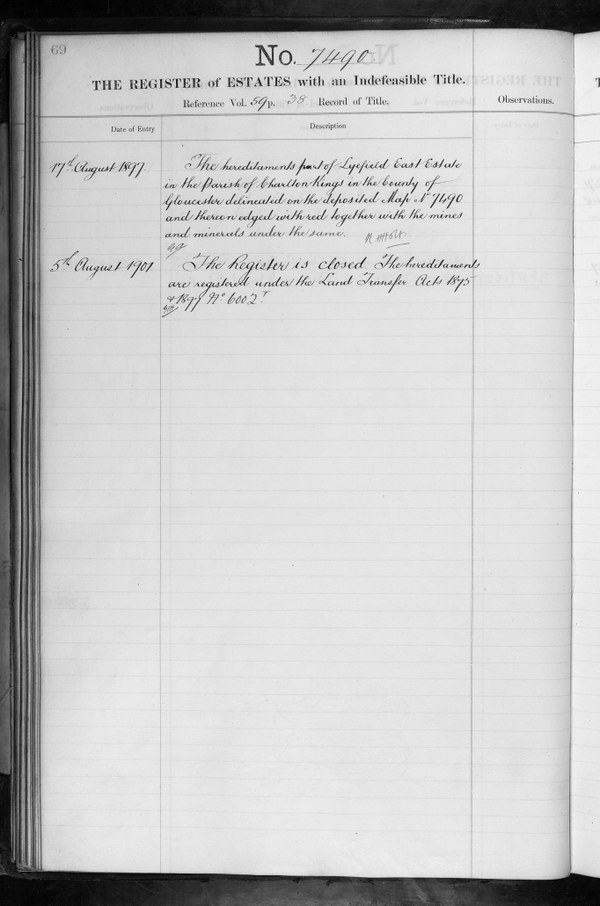 69
No. 7490
THE REGISTER of ESTATES with an Indefeasible Title.
Reference Vol. 59 p. 38 Record of Title.
Observations.
Date of Entry
Description
17th August 1897.
The hereditaments part of Lyefield East Estate
in the Parish of Charlton Kings in the County of
Gloucester delineated on the deposited Map No 7490
and thereon edged with red together with the mines
and minerals under the same.
5th August 1901
The Register is closed The hereditaments
are registered under the Land Transfer Acts 1875
& 1897 No 6002.